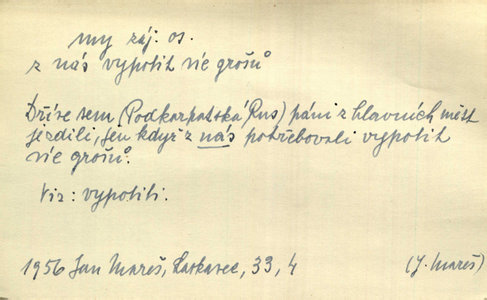 my záj. os.
z nás vypotit víc grošů
Dříve sem (Podkarpatská Rus) páni z hlavních měst
jezdili, jen když z nás potřebovali vypotit
víc grošů.
Viz: vypotiti.
1956 Jan Mareš, Laskavec, 33, 4 (J. Mareš)